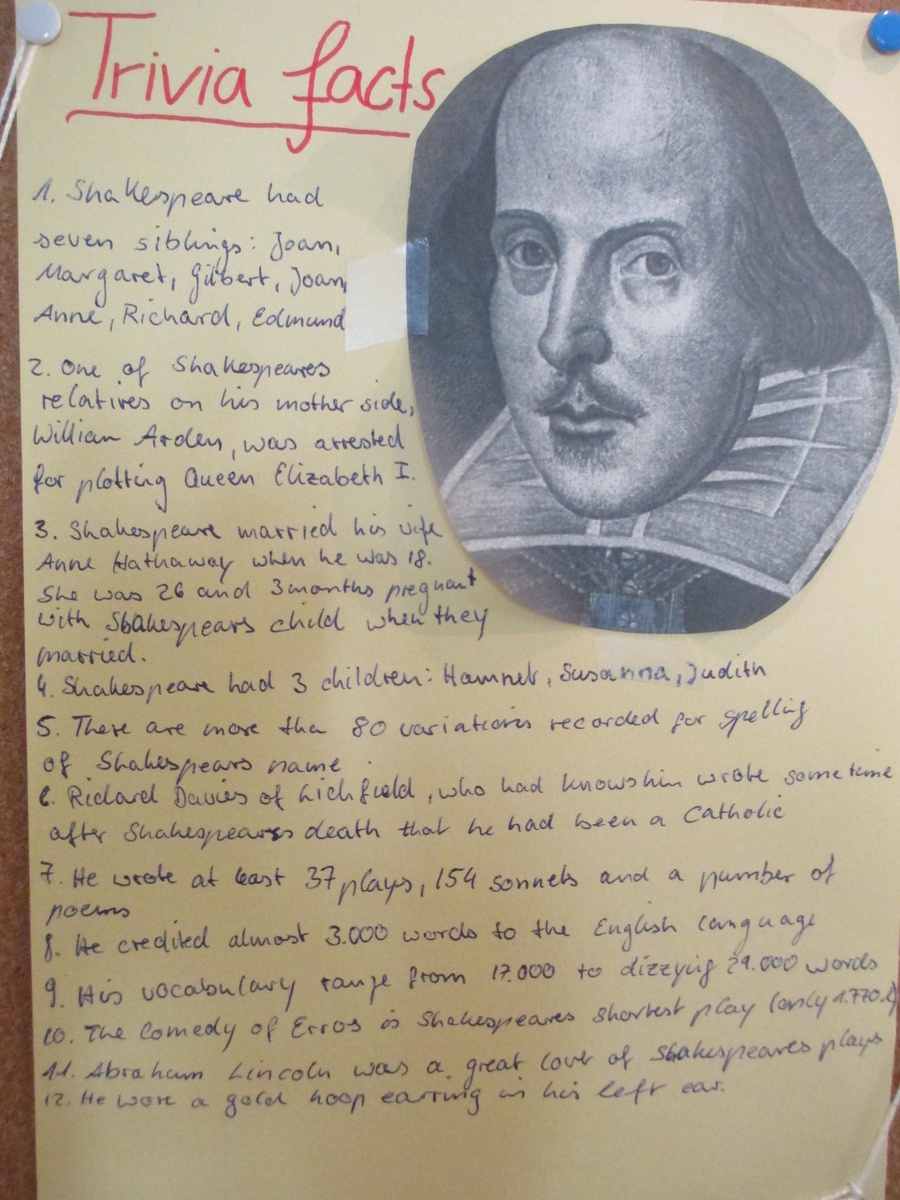 Trivia facts
1. Shakespeare had
seven siblings: Joan,
Margaret, Gilbert, Joan,
Anne, Richard, Edmund
2. One of Shakespeares
relatives on his mother side,
William Arden, was arrested
for plotting Queen Elizabeth I.
3. Shakespeare married his wife
Anne Hathaway when he was 18.
She was 26 and 3 months pregnant
with Shakespears child when they
married.
4. Shakespeare had 3 children: Hamnet, Susanna, Judith
5. There are more than 80 variations recorded for spelling
of Shakespears name.
6. Richard Davies of Lichfield, who had knows him wrote some time
after Shakespeares death that he had been a Catholic
7. He wrote at least 37 plays, 154 sonnets and a number of
poems
8. He credited almost 3.000 words to the English language
9. His vocabulary range from 17.000 to dizzying 29.000 words
10. The Comedy of Erros is Shakespeares shortest play (only 1.770
11. Abraham Lincoln was a great lover of Shakespeares plays
12. He wore a gold hoop earring in his left ear.